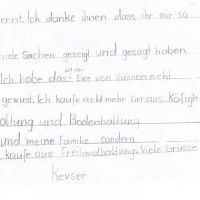 ernt. Ich danke ihnen dass ihr mir so
viele Sachen gezeigt und gesagt haben.
Ich habe das Eier von Hühnern nicht
gewusst. Ich kaufe nicht mehr Eier aus Käfigh
altung und Bodenhaltung
und meine Familie sondern
kaufe aus Freilandhaltung. Viele Grüsse
Kevser